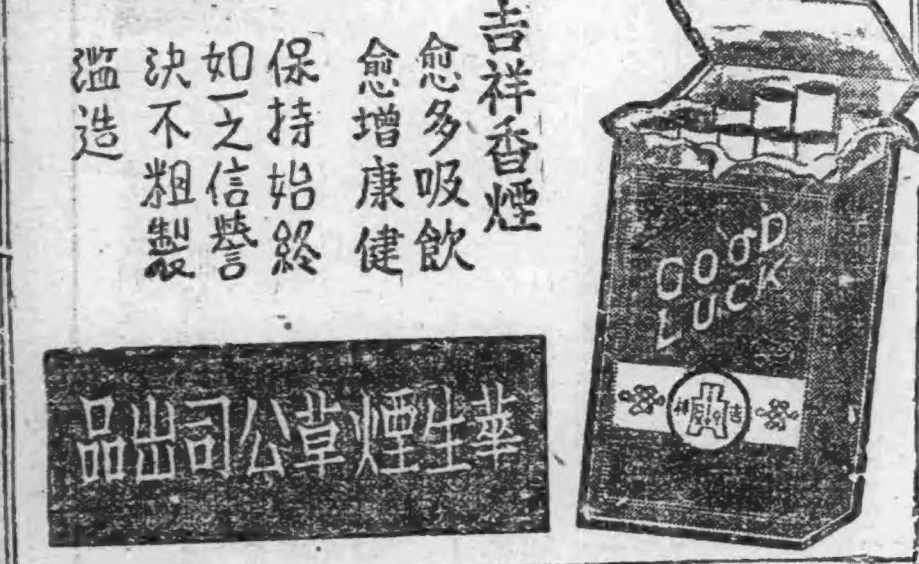 吉祥香煙
愈多吸飲
愈增康健
保持始終
如一之信譽
決不粗製
濫造
GOOD
LUCK
華生煙草公司出品